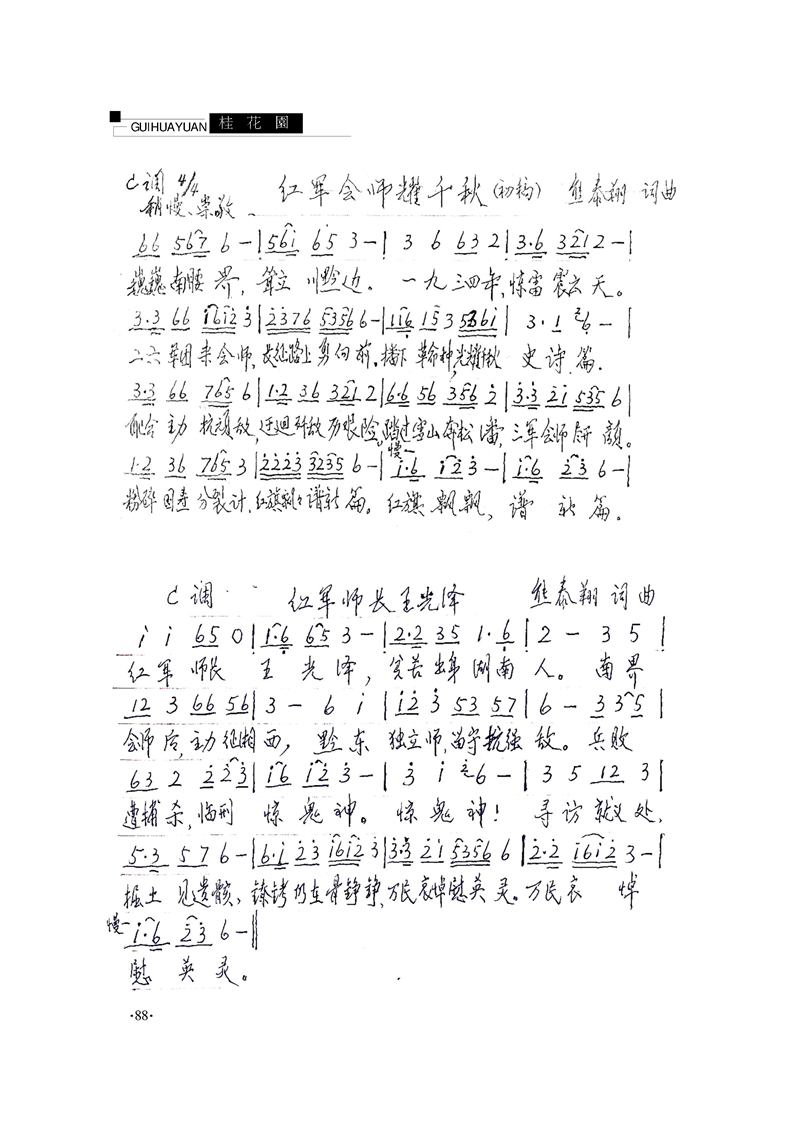 GUIHUAYUAN 桂花園
C调 4/4 红军会师耀千秋(初稿) 熊泰翔 词曲
稍慢、崇敬
66 567 6 - | 561 65 3 - | 3 6 63 2 | 3·6 321 2 - |
巍巍南腰界，耸立川黔边。一九三四年，惊雷震云天。
3·3 66 1612 3 | 2376 5356 6 - | 116 153 5361 | 3·1 6 - |
二六军团来会师，长征路上勇向前。播下革命种，光耀 史诗篇.
3·3 66 765 6 | 1·2 36 321 2 | 6·6 56 356 2 | 3·3 21 535 6 |
配合主力抗顽敌，迂迴歼敌历艰险，踏过雪山奔松潘，三军会师 颜。
慢一
1·2 36 765 3 | 2223 3235 6 - | 1·6 123 - | 1·6 23 6 - |
粉碎国焘分裂计，红旗飘飘谱新篇。红旗飘飘，谱新篇.
C调 红军师长王光泽 熊泰翔 词曲
1 1 65 0 | 1·6 65 3 - | 2·2 35 1·6 | 2 - 3 5 |
红军师长王光泽，贫苦出身湖南人。南界
12 3 66 56 | 3 - 6 1 | 12 3 53 57 | 6 - 3 3 5 |
会师后，主力征湘西，黔东独立师，留守抗强敌。兵败
63 2 2 23 | 16 12 3 - | 3 1 6 - | 3 5 12 3 |
遭捕杀，临刑惊鬼神。惊鬼神！寻访就义处，
5·3 5 7 6 - | 6·1 23 1612 3 | 3·3 21 5356 6 | 2·2 1612 3 - |
掘土见遗骸，镣铐仍在骨铮铮，万民哀悼慰英灵。万民哀悼
慢一
1·6 23 6 - ‖
慰英灵。
·88·